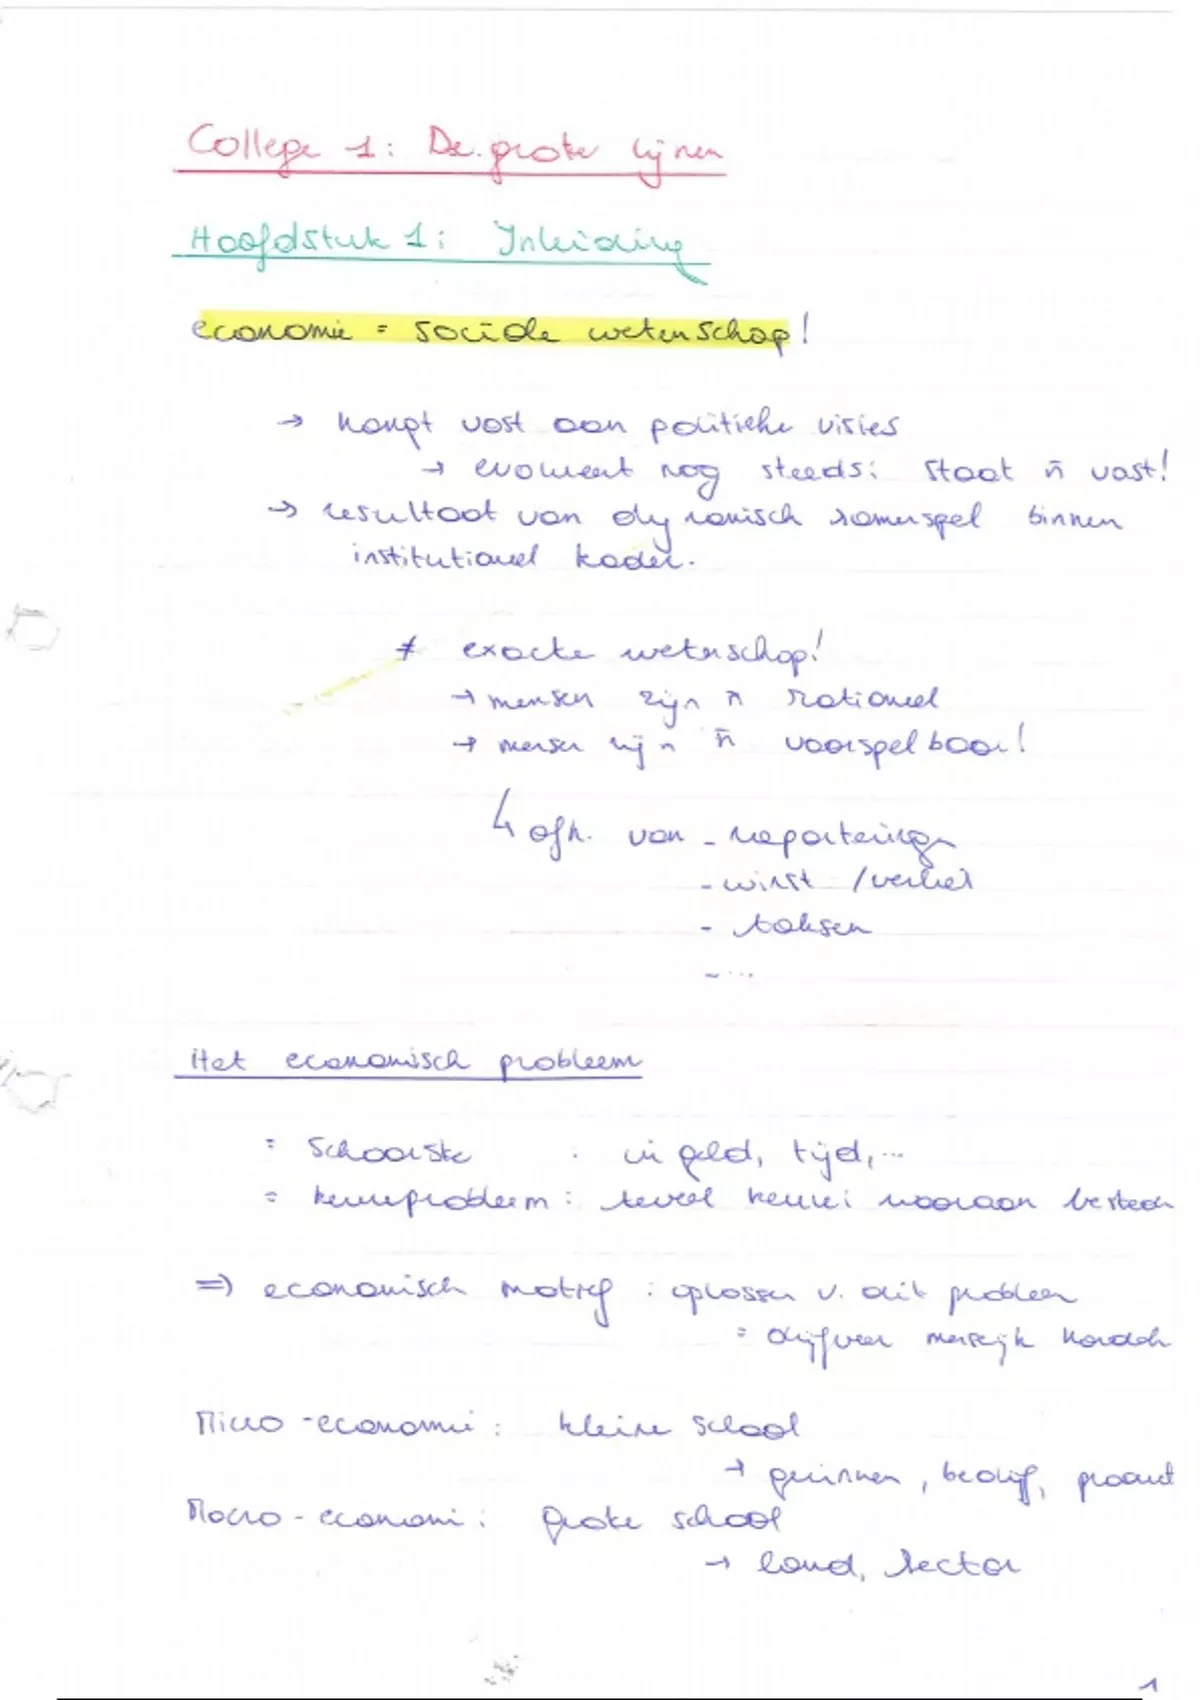 College 1: De grote lijnen
Hoofdstuk 1: Inleiding
economie = sociale wetenschap!
→ hangt vast aan politieke visies
→ evolueert nog steeds: staat ñ vast!
→ resultaat van dynamisch samenspel binnen
institutioneel kader.
≠ exacte wetenschap!
→ mensen zijn ñ rationeel
→ mensen zijn ñ voorspelbaar!
↳ afh. van - rapportering
- winst / verlies
- taksen
- ...
Het economisch probleem
= schaarste : in geld, tijd, ...
= keuzeprobleem: teveel keuze: waaraan besteden
=> economisch motief : oplossen v. dit probleem
= drijfveer menselijk handelen
Micro-economie: kleine schaal
→ gezinnen, bedrijf, product
Macro-economie: grote schaal
→ land, sector
1